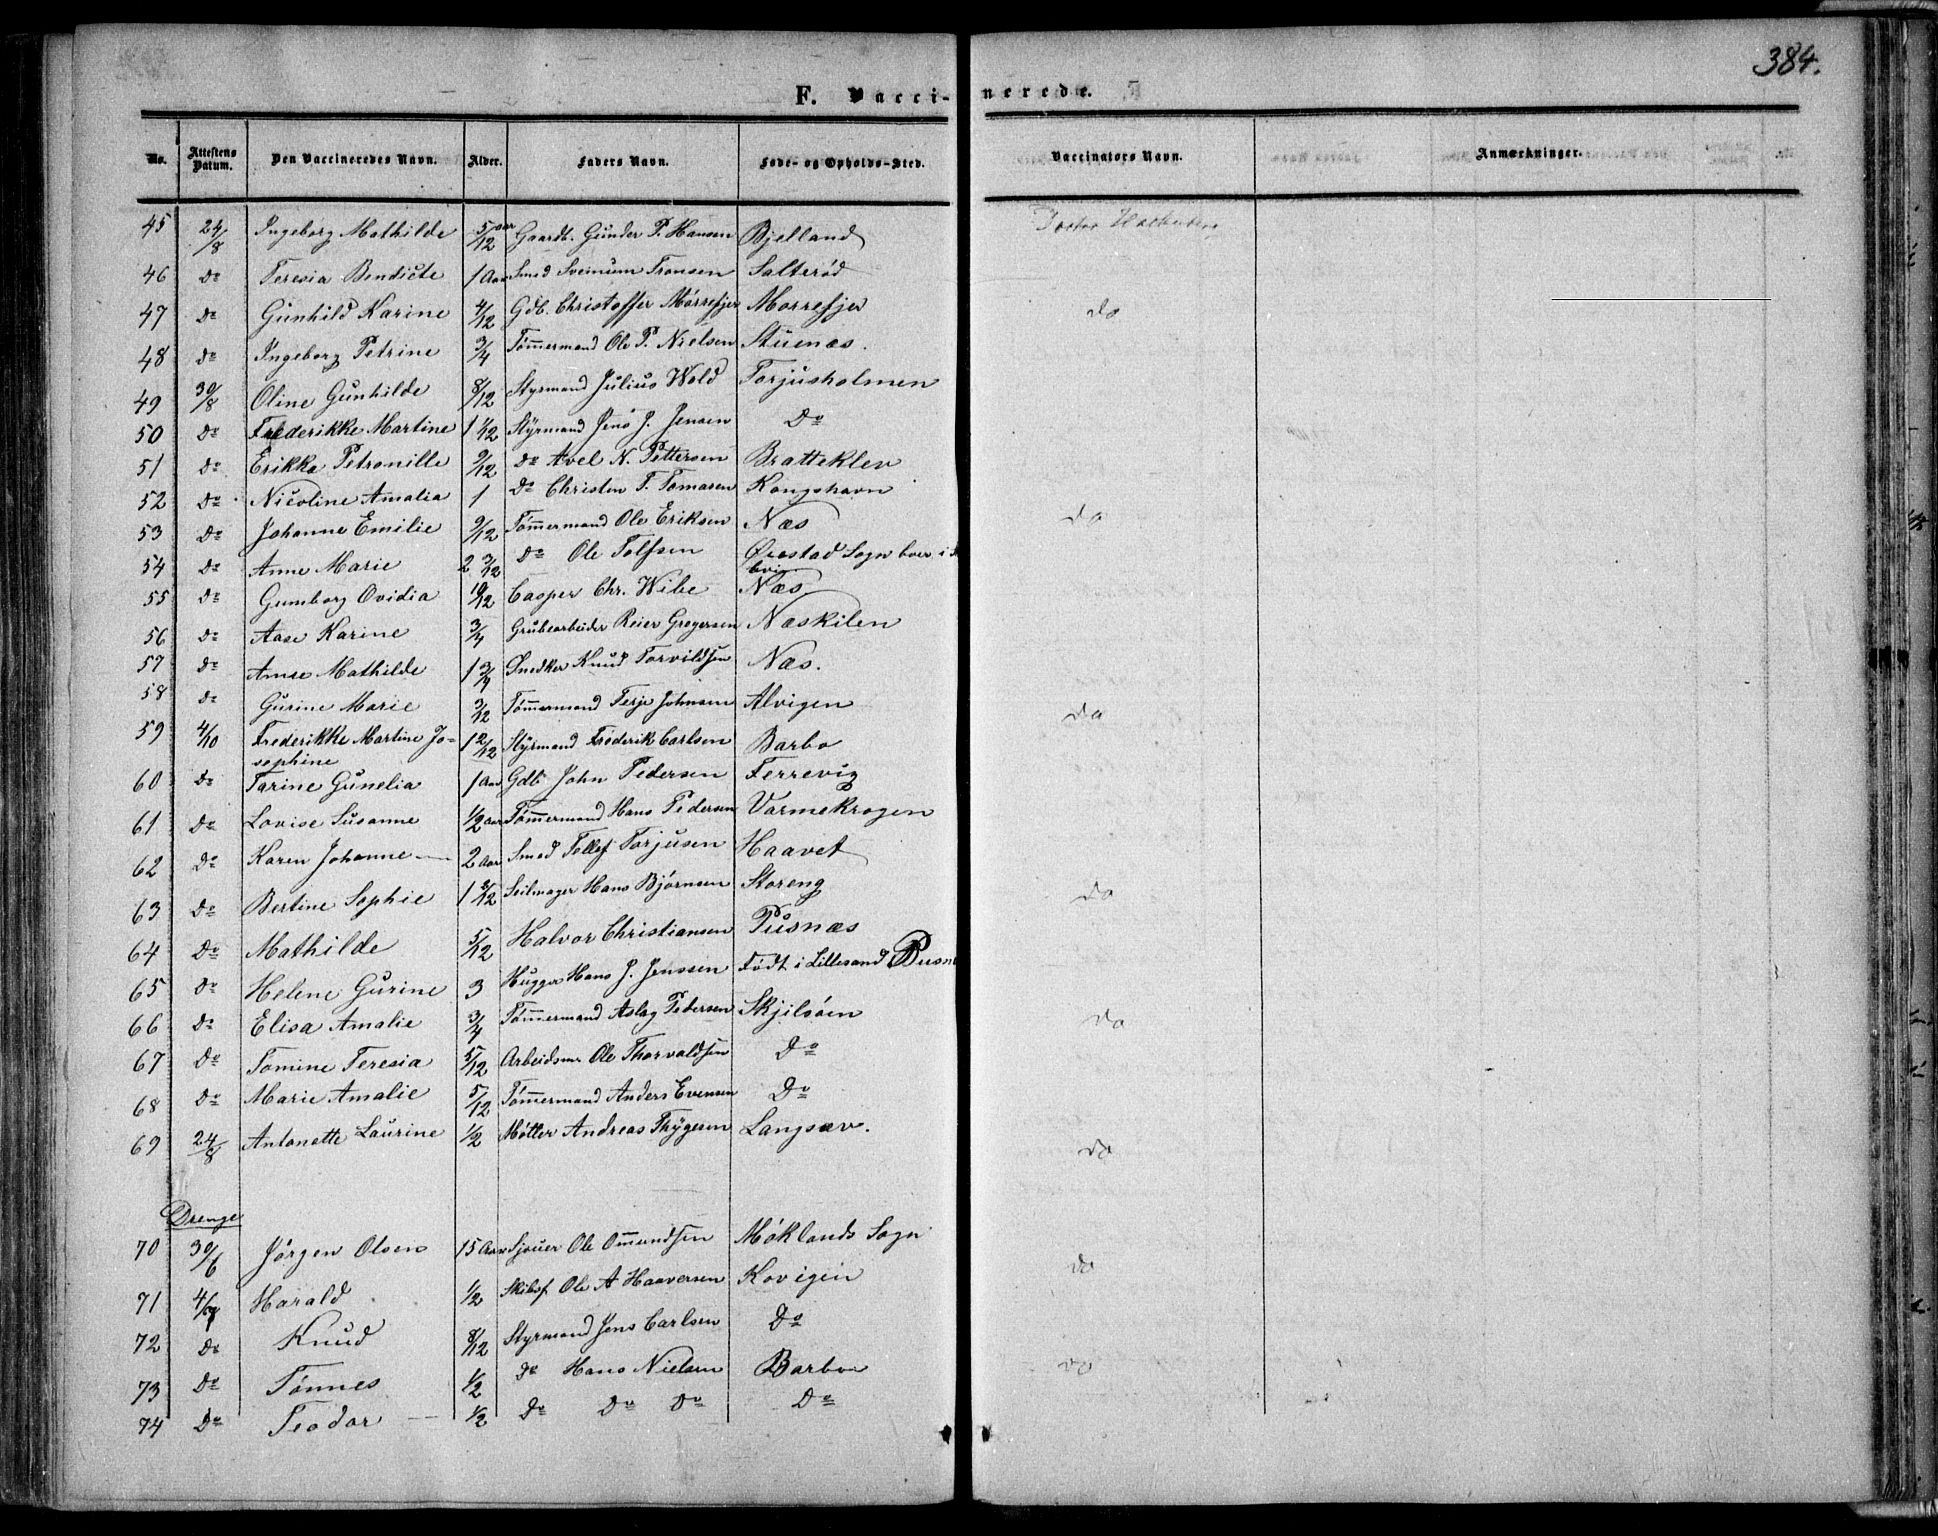 384.
F. Vaccinerede.
No. Attestens Datum. Den Vaccineredes Navn. Alder. Faders Navn. Føde- og Opholds-Sted. Vaccinators Navn. Anmærkninger.
45 24/8 Ingeborg Mathilde 5/12 aar Gaardb. Gunder P. Hansen Bjelland Doctor
46 Do Teresia Bendicte 1 Aar Smed Sveinum Tronsen Salterød
47 Do Gunhild Karine 4/12 Gdb. Christoffer Mørrefjer Morrefjer do
48 Do Ingeborg Petrine 3/4 Tømmermand Ole P. Nielsen Stuenæs.
49 30/8 Oline Gunhilde 8/12 Styrmand Julius Wold Torjusholmen
50 Do Frederikke Martine 1 1/12 Styrmand Jens J. Jensen Do
51 Do Erikka Petronille 9/12 Do Axel N. Pettersen Bratteklev
52 Do Nicoline Amalia 1 Do Christen T. Tomasen Kongshavn
53 Do Johanne Emilie 9/12 Tømmermand Ole Eriksen Næs do
54 Do Anne Marie 2 3/12 Do Ole Tolfsen Øiestad Sogn boer i
55 Do Gumborg Ovidia 10/12 Casper Chr. Wibe Næs
56 Do Aase Karine 3/4 Grubearbeider Reier Gregersen Næskilen
57 Do Anne Mathilde 1 3/4 Snedker Knud Torvildsen Næs.
58 Do Gurine Marie 3/12 Tømmermand Terje Johnsen Alvigen do
59 4/10 Frederikke Martine Jo-
sephine 1 2/12 Styrmand Frederik Carlsen Barbo
60 Do Tarine Gunelia 1 Aar Gdb John Pedersen Ferrevig
61 Do Lovise Susanne 1/2 aar Tømmermand Hans Pedersen Varmekrogen
62 Do Karen Johanne 2 Aar Smed Tellef Torjusen Haavet
63 Do Bertine Sophie 1 2/12 Seilmager Hans Bjørnsen Storeng do
64 Do Mathilde 5/12 Halvor Christiansen Pusnæs
65 Do Helene Gurine 3 Hugger Hans J. Jenssen Født i Lillesand
66 Do Elisa Amalie 3/4 Tømmermand Aslag Pedersen Skjilsöen do
67 Do Tomine Teresia 5/12 Arbeidsm. Ole Thorvaldsen Do
68 Do Marie Amalie 5/12 Tømmermand Anders Evensen Do
69 24/8 Antonette Laurine 1/2 Møller Andreas Thygesen Langsæv. do
Drenge
70 30/6 Jørgen Olsen 15 Aar Sjouer Ole Omundsen Møklands Sogn do
71 4/7 Harald 1/2 Skibsf Ole A Haaversen Kovigen
72 Do Knud 8/12 Styrmand Jens Carlsen Do
73 Do Tønnes 1/2 do Hans Nielsen Barbo do
74 Do Teodor 1/2 Do Do Do Do